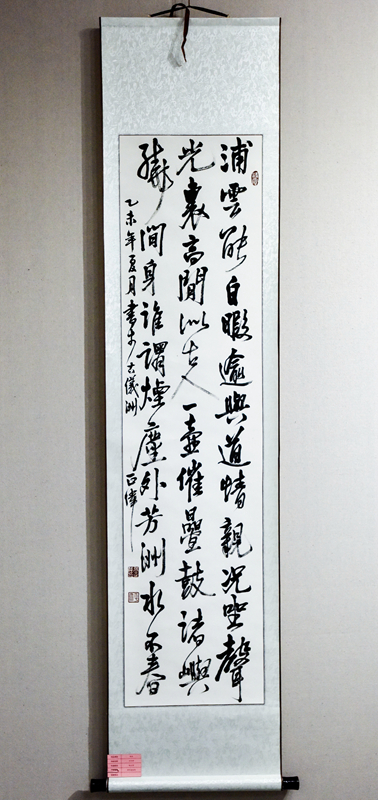 浦雲能自暇逾與道情親況坐聲
光裏高閒似古人一壺催疊鼓諸嶼
繞閒身誰謂煙塵外芳洲水不春
乙未年夏月書於古儀洲 正偉